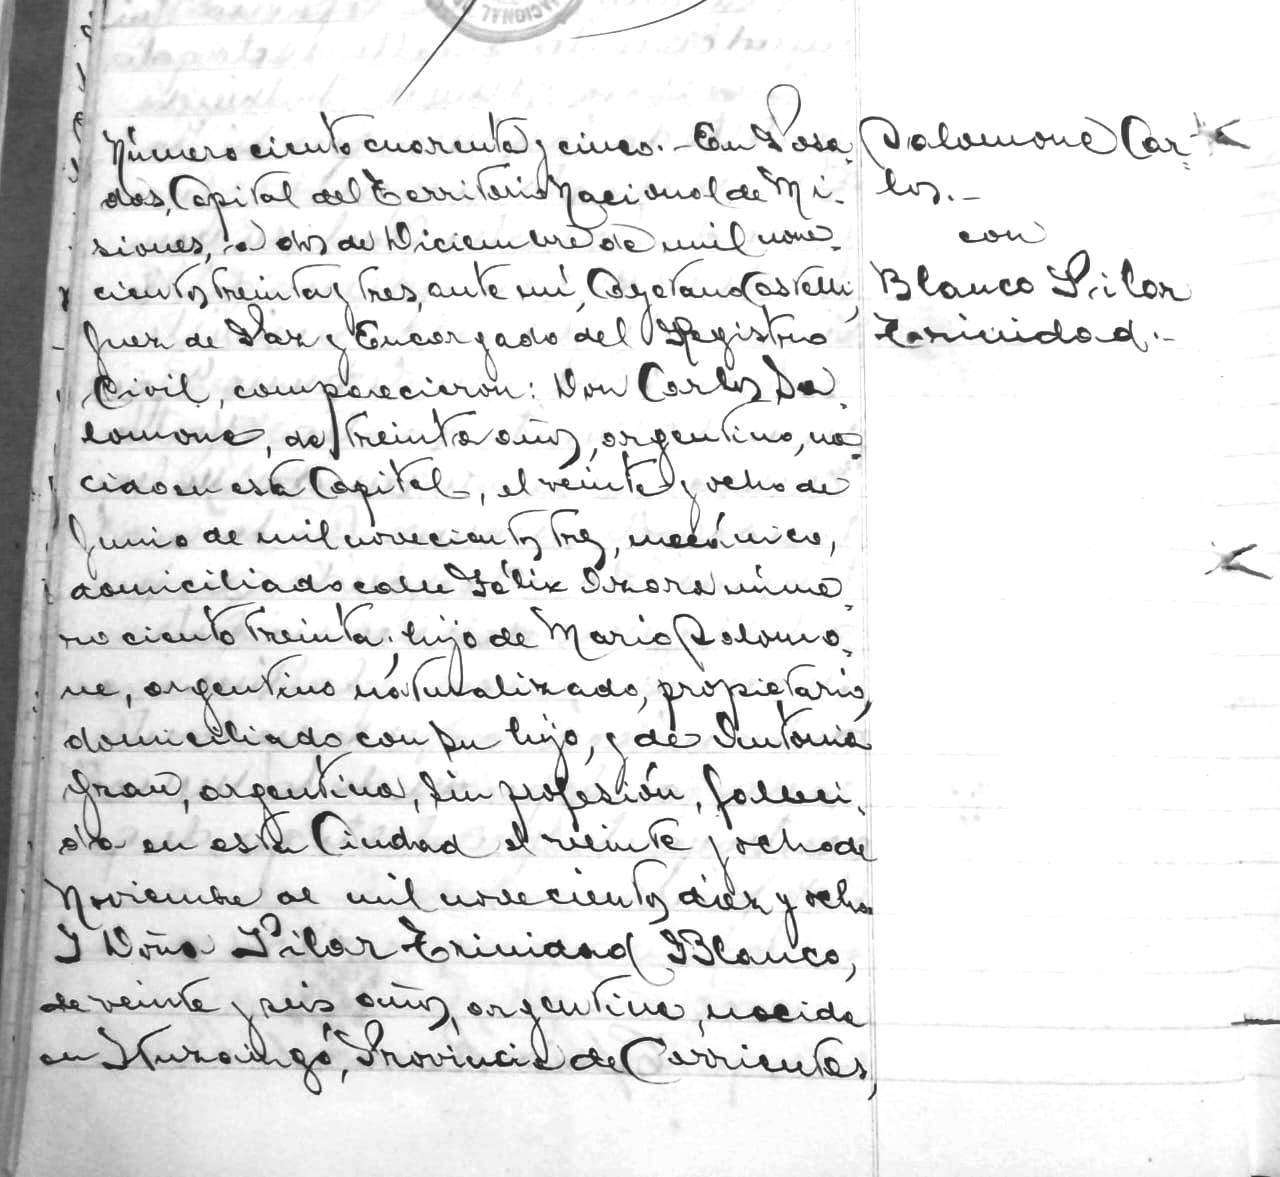 Número ciento cuarenta y cinco.- En Posa-
das, Capital del Territorio Nacional de Mi-
siones, a dos de Diciembre de mil nove-
cientos treinta y tres, ante mí, Cayetano Castelli,
Juez de Paz y Encargado del Registro
Civil, comparecieron: Don Carlos Sa-
lomone, de treinta años, argentino, na-
cido en esta Capital, el veinte y ocho de
Junio de mil novecientos tres, mecánico,
domiciliado calle Félix Azara núme-
ro ciento treinta; hijo de Mario Salomo-
ne, argentino naturalizado, propietario,
domiciliado con su hijo, y de Antonia
Grau, argentina, sin profesión, falleci-
da en esta Ciudad el veinte y ocho de
Noviembre de mil novecientos diez y ocho
Y Doña Pilar Trinidad Blanco,
de veinte y seis años, argentina, nacida
en Ituzaingó, Provincia de Corrientes,
Salomone Car-
los.-
con
Blanco Pilar
Trinidad.-